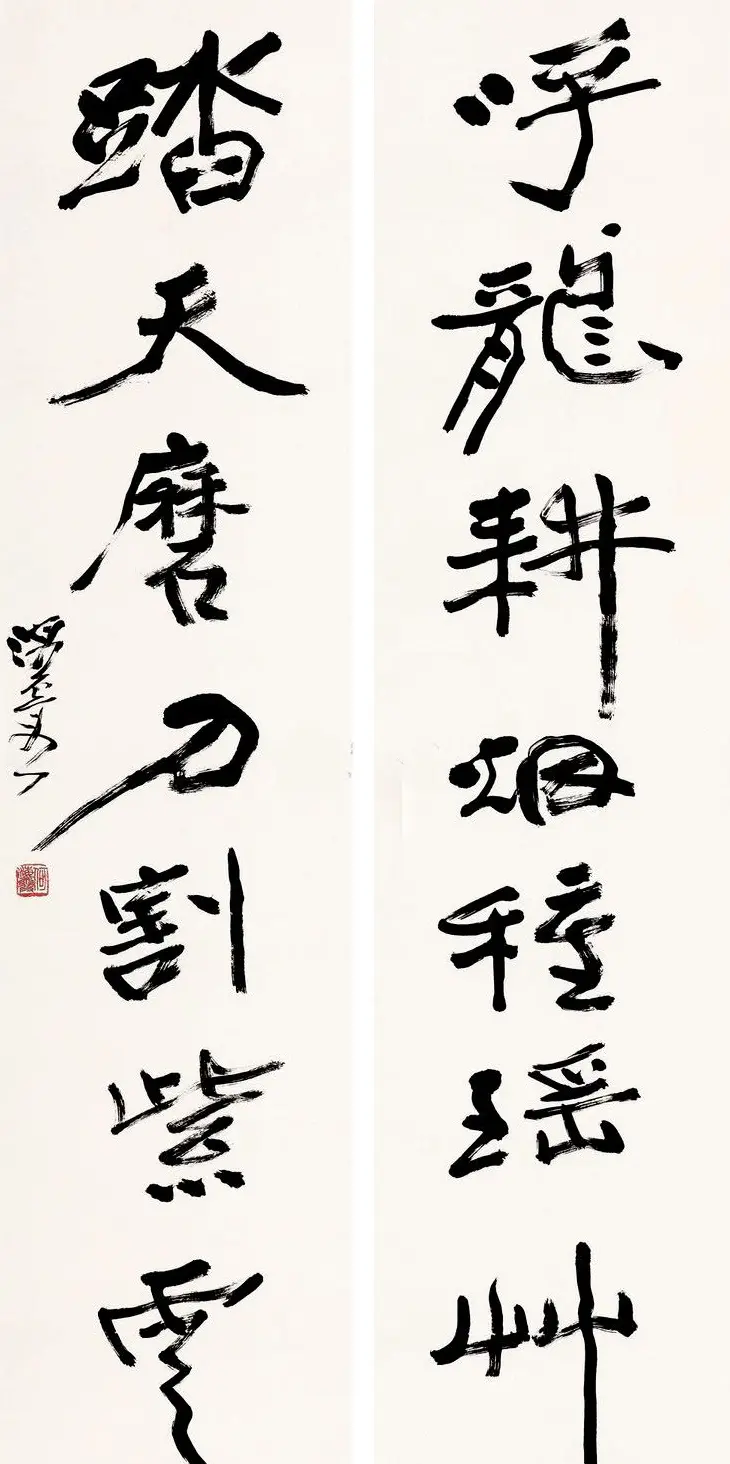 呼龍耕烟種瑶艸
踏天磨刀割紫雲